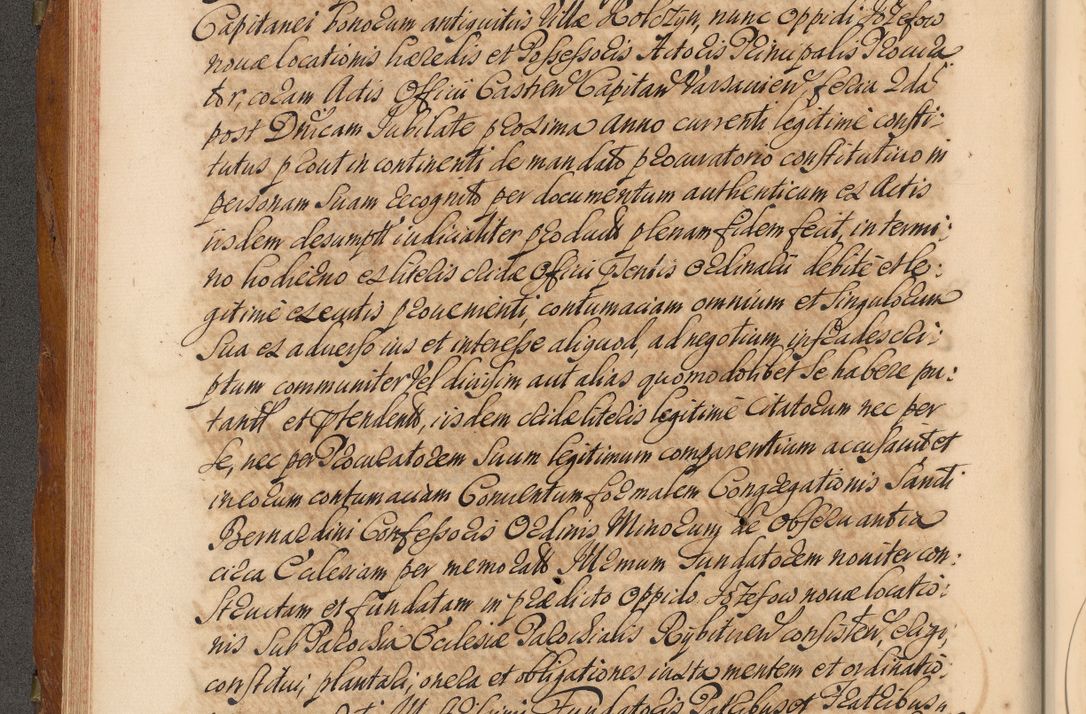 Capitanei bonorum antiquitus Villæ Kolczyn, nunc Oppidi Jozefow
novæ locationis hæredis et Possessoris Actoris Principalis Procura
tor, coram Actis Officii Castren Capitan Varsavien, feria 2da
post Dnicam Jubilate proxima Anno currenti legitimè consti:
tutus prout in continenti de mandato procuratorio constitutivo in
personam Suam recognito per documentum authenticum ex Actis
iisdem desumptt iudicialiter producto plenam fidem fecit, in termi:
no hodierno ex literis cridæ Officii psentis Ordinarii debitè et le:
gitimè executis provenienti, contumaciam omnium et Singulorum
Sua ex adverso ius et interesse aliquod, ad negotium infradescri:
ptum communiter Vel divisim aut alias quomodolibet Se habere pu:
tantt et ptendentt, iisdem cridæ literis legitimè Citatorum nec per
Se, nec per Procuratorem Suum legitimum comparentium accusavit et
in eorum contumaciam Conventum formalem Congregationis Sancti
Bernardini Confessoris Ordinis Minorum de Observantia
circa Ecclesiam per memoratt Illmum Fundatorem noviter con:
structam et fundatam in prædicto Oppido Jozefow novæ locatio:
nis Sub Parochia Ecclesiæ Parochialis Rybitwen consisten, erigi
constitui, plantari, onera et obligationes iuxta mentem et ordinatio:
Fundatoris Patribus et Fratribus